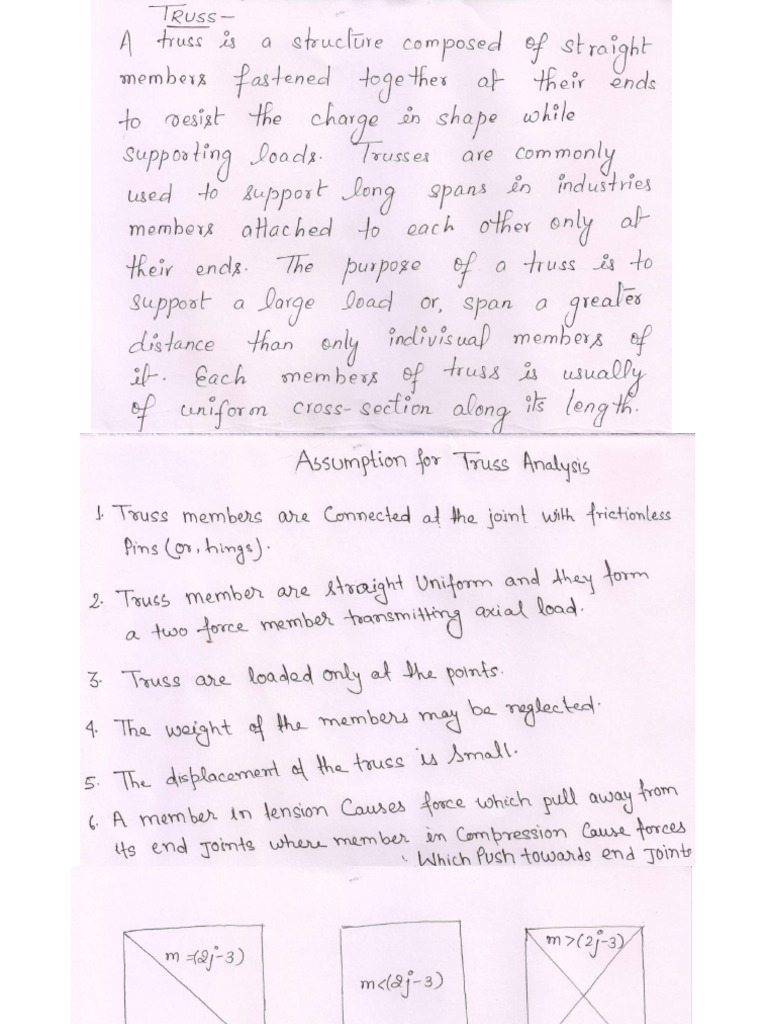 TRUSS-
A truss is a structure composed of straight
members fastened together at their ends
to resist the charge in shape while
supporting loads. Trusses are commonly
used to support long spans in industries
members attached to each other only at
their ends. The purpose of a truss is to
support a large load or, span a greater
distance than only indivisual members of
it. Each members of truss is usually
of uniform cross-section along its length.
Assumption for Truss Analysis
1. Truss members are Connected at the joint with frictionless
Pins (or, hings).
2. Truss member are straight Uniform and they form
a two force member transmitting axial load.
3. Truss are loaded only at the points.
4. The weight of the members may be neglected.
5. The displacement of the truss is Small.
6. A member in tension Causes force which pull away from
its end joints where member in Compression Cause forces
Which Push towards end Joints
m=(2j-3)
m<(2j-3)
m>(2j-3)